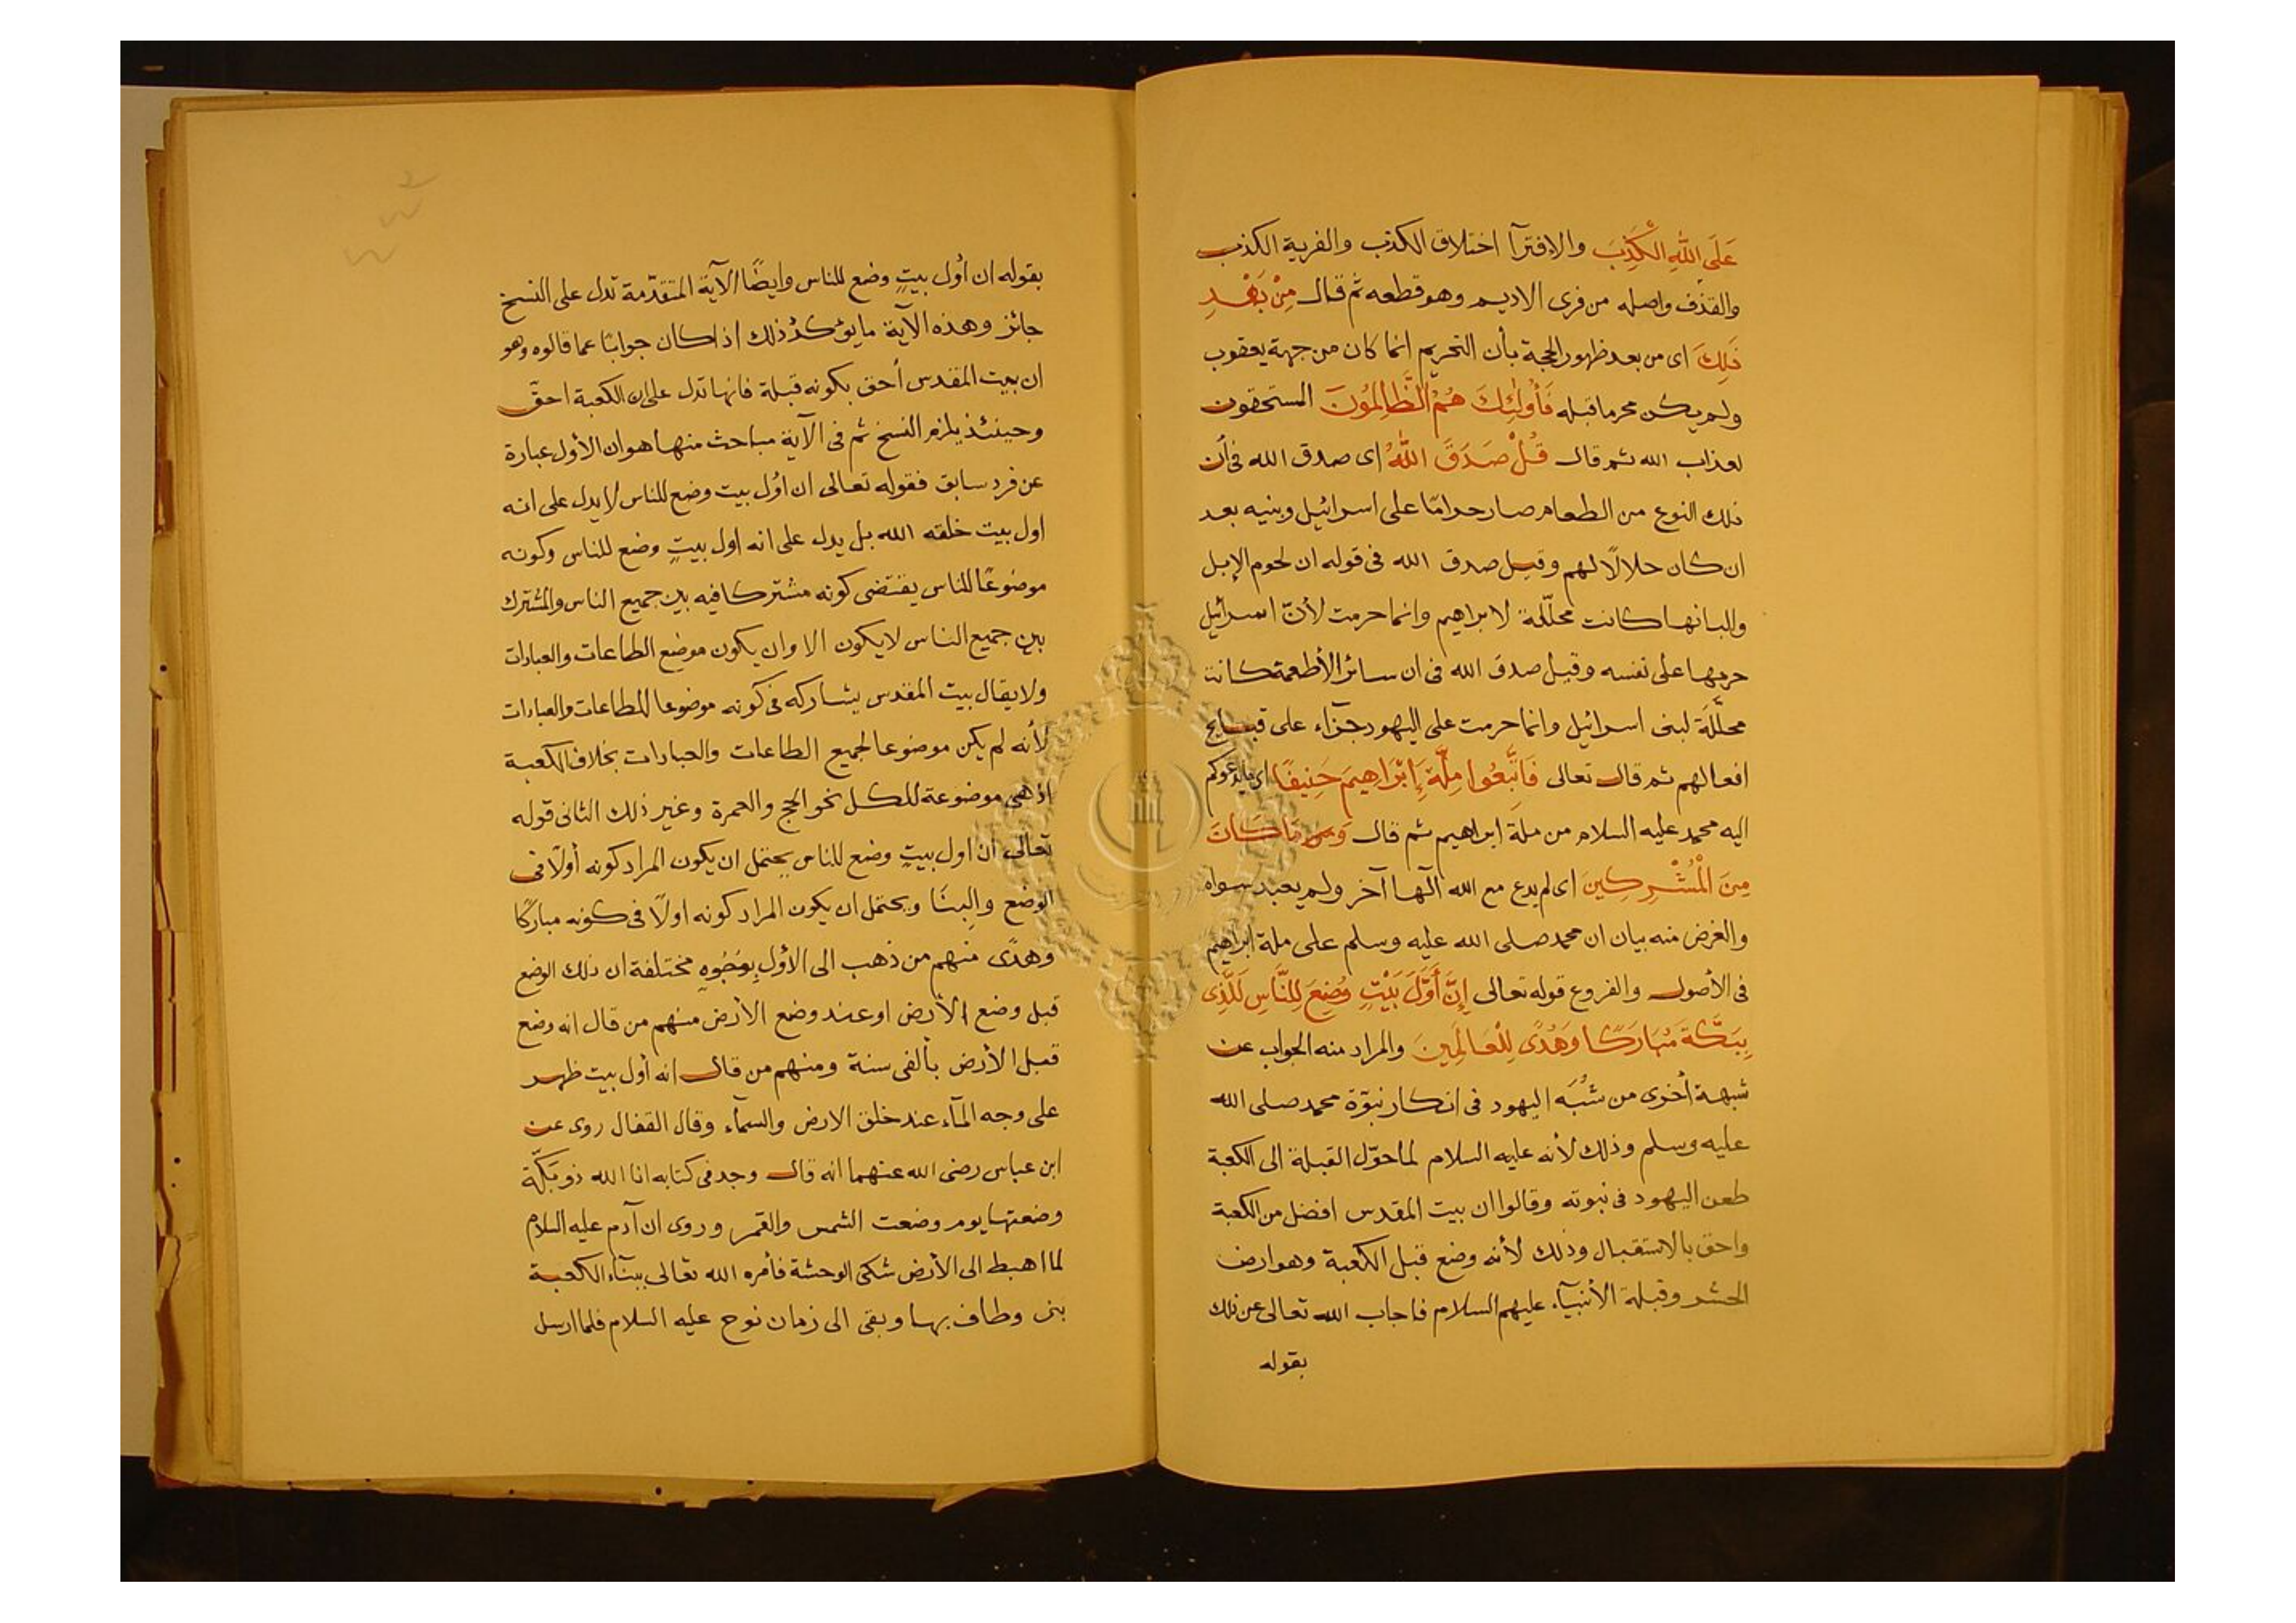 عَلَى اللهِ الْكَذِبَ والافترآ اختلاق الكذب والفرية الكذب
والقذف واصله من فرى الاديم وهو قطعه ثم قال مِنْ بَعْدِ
ذَلِكَ اى من بعد ظهور الحجة بأن التحريم انما كان من جهة يعقوب
ولم يكن محرما قبله فَأُولَٰئِكَ هُمُ الظَّالِمُونَ المستحقون
لعذاب الله ثم قال قُلْ صَدَقَ اللهُ اى صدق الله فى أن
ذلك النوع من الطعام صار حرامًا على اسرائيل وبنيه بعد
ان كان حلالًا لهم وقيل صدق الله فى قوله ان لحوم الإبل
والبانها كانت محلّلة لابراهيم وانما حرمت لأنّ اسرائيل
حرمها على نفسه وقيل صدق الله فى ان سائر الأطعمة كانت
محلَّلَة لبنى اسرائيل وانما حرمت على اليهود جزآء على قبايح
افعالهم ثم قال تعالى فَاتَّبِعُوا مِلَّةَ إِبْرَاهِيمَ حَنِيفًا اى ما يدعوكم
اليه محمد عليه السلام من ملة ابراهيم ثم قال وَمَا كَانَ
مِنَ الْمُشْرِكِينَ اى لم يدع مع الله آلها آخر ولم يعبد سواه
والغرض منه بيان ان محمد صلى الله عليه وسلم على ملة ابراهيم
فى الأصول والفروع قوله تعالى إِنَّ أَوَّلَ بَيْتٍ وُضِعَ لِلنَّاسِ لَلَّذِى
بِبَكَّةَ مُبَارَكًا وَهُدًى لِلْعَالَمِينَ والمراد منه الجواب عن
شبهة أخرى من شُبَه اليهود فى انكار نبوّة محمد صلى الله
عليه وسلم وذلك لأنه عليه السلام لما حوّل القبلة الى الكعبة
طعن اليهود فى نبوته وقالوا ان بيت المقدس افضل من الكعبة
واحق بالاستقبال وذلك لأنه وضع قبل الكعبة وهو ارض
الحشر وقبلة الأنبيآء عليهم السلام فاجاب الله تعالى عن ذلك
بقوله
بقوله ان أول بيتٍ وضع للناس وايضًا الآية المتقدّمة تدل على النسخ
جائز وهذه الآية ما يؤكد ذلك اذا كان جوابًا عما قالوه وهو
ان بيت المقدس أحق بكونه قبلة فانها تدل على ان الكعبة احقّ
وحينئذ يلزم النسخ ثم فى الآية مباحث منها هو ان الأول عبارة
عن فرد سابق فقوله تعالى ان اوّل بيت وضع للناس لا يدل على انه
اول بيت خلقه الله بل يدل على انه اول بيتٍ وضع للناس وكونه
موضوعًا للناس يقتضى كونه مشتركا فيه بين جميع الناس والمشترك
بين جميع الناس لا يكون الا وان يكون موضع الطاعات والعبادات
ولا يقال بيت المقدس يشاركه فى كونه موضوعا للطاعات والعبادات
لأنه لم يكن موضوعا لجميع الطاعات والعبادات بخلاف الكعبة
اذ هى موضوعة للكل نحو الحج والعمرة وغير ذلك الثانى قوله
تعالى ان اول بيتٍ وضع للناس يحتمل ان يكون المراد كونه أولًا فى
الوضع والبِنَا ويحتمل ان يكون المراد كونه اولًا فى كونه مباركًا
وهدًى منهم من ذهب الى الأوّل بِوُجُوهٍ مختلفة ان ذلك الوضع
قبل وضع الأرض او عند وضع الأرض منهم من قال انه وضع
قبل الأرض بألفى سنة ومنهم من قال انه أول بيت ظهر
على وجه المآء عند خلق الارض والسمآء وقال القفال روى عن
ابن عباس رضى الله عنهما انه قال وجد فى كتابه انا الله ذو بَكّة
وضعتها يوم وضعت الشمس والقمر وروى ان آدم عليه السلام
لما اهبط الى الأرض شكى الوحشة فأمره الله تعالى ببنآء الكعبة
بنى وطاف بها وبقى الى زمان نوح عليه السلام فلما ارسل